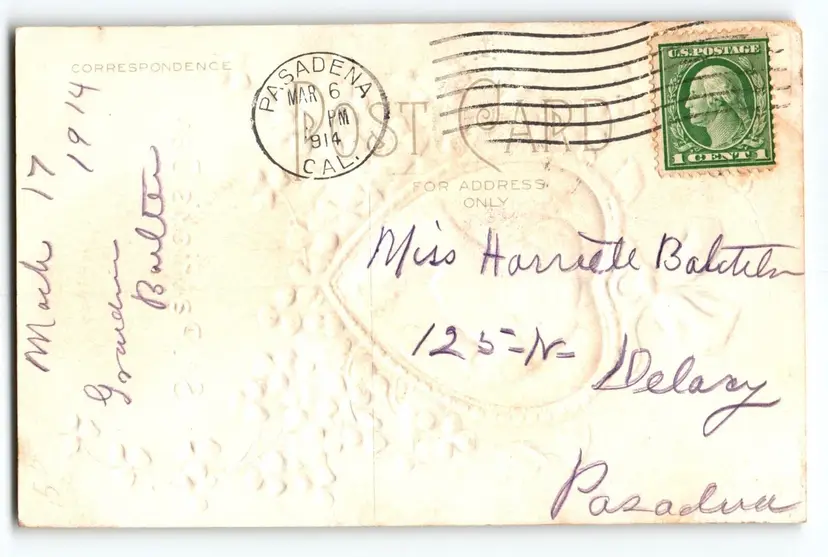 CORRESPONDENCE
POST CARD
FOR ADDRESS
ONLY
PASADENA
MAR 6
PM
1914
CAL.
U.S. POSTAGE
1 CENT 1
Mach 17
1914
Miss Harriette
125-N- Delacy
Pasadena